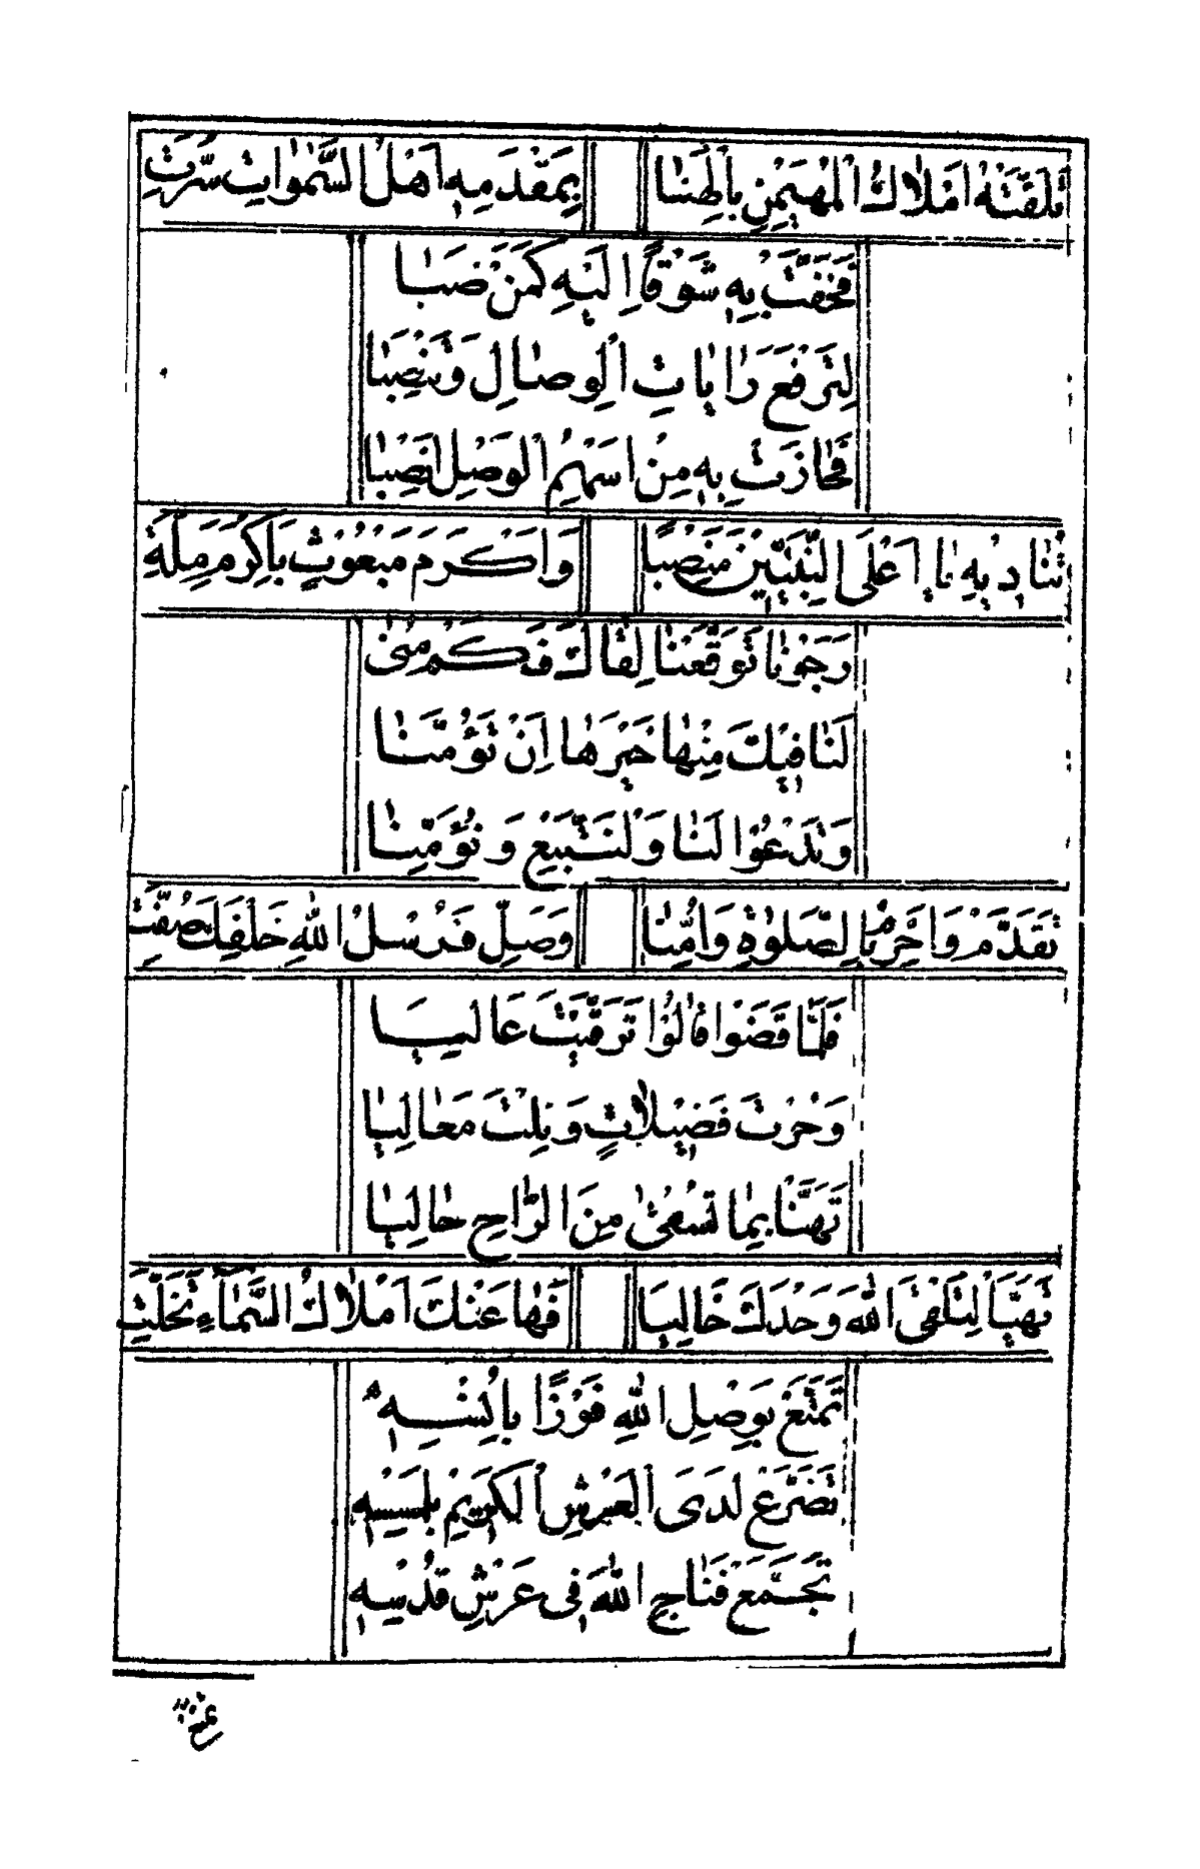 تَلَقَّتْهُ اَمْلَاكُ الْمُهَيْمِنِ بِالْهَنَا بِمَقْدَمِهِ اَهْلُ السَّمٰوَاتِ سُرَّتِ
فَحَفَّتْ بِهِ شَوْقًا اِلَيْهِ كَمَنْ صَبَا
لِتَرْفَعَ رَايَاتِ الْوِصَالِ وَتَنْصِبَا
فَحَازَتْ بِهِ مِنْ اَسْهُمِ الْوَصْلِ اَنْصِبَا
تُنَادِيْهِ يَا اَعْلَى النَّبِيِّيْنَ مَنْصِبًا وَاَكْرَمَ مَبْعُوْثٍ بِاَكْرَمِ مِلَّةِ
رَجَوْنَا تَوَقَّعْنَا لِقَاكَ فَكَمْ مُنٰى
لَنَا فِيْكَ مِنْهَا خَيْرَهَا اِنْ تَؤُمَّنَا
وَتَدْعُوْا لَنَا وَلْنَتَّبِعْ وَنُؤَمِّنَا
تَقَدَّمْ وَاَحْرِمْ بِالصَّلٰوةِ وَاُمَّنَا وَصَلِّ فَرُسْلُ اللهِ خَلْفَكَ صُفَّتِ
فَلَمَّا قَضَوْا قَالُوْا تَرَقَّيْتَ عَالِيَا
وَحُزْتَ فَضِيْلَاتٍ وَنِلْتَ مَعَالِيَا
تَهَنَّا بِمَا تُسْقٰى مِنَ الرَّاحِ حَالِيَا
تَهَيَّأْ لِتَلْقَى اللهَ وَحْدَكَ خَالِيَا فَهَا عَنْكَ اَمْلَاكُ السَّمَاءِ تَخَلَّتِ
تَمَتَّعْ بِوَصْلِ اللهِ فَوْزًا بِاُنْسِهِ
تَضَرَّعْ لَدَى الْعَرْشِ الْكَرِيْمِ بِلَمْسِهِ
تَجَمَّعْ فَنَاجِ اللهَ فِى عَرْشِ قُدْسِهِ